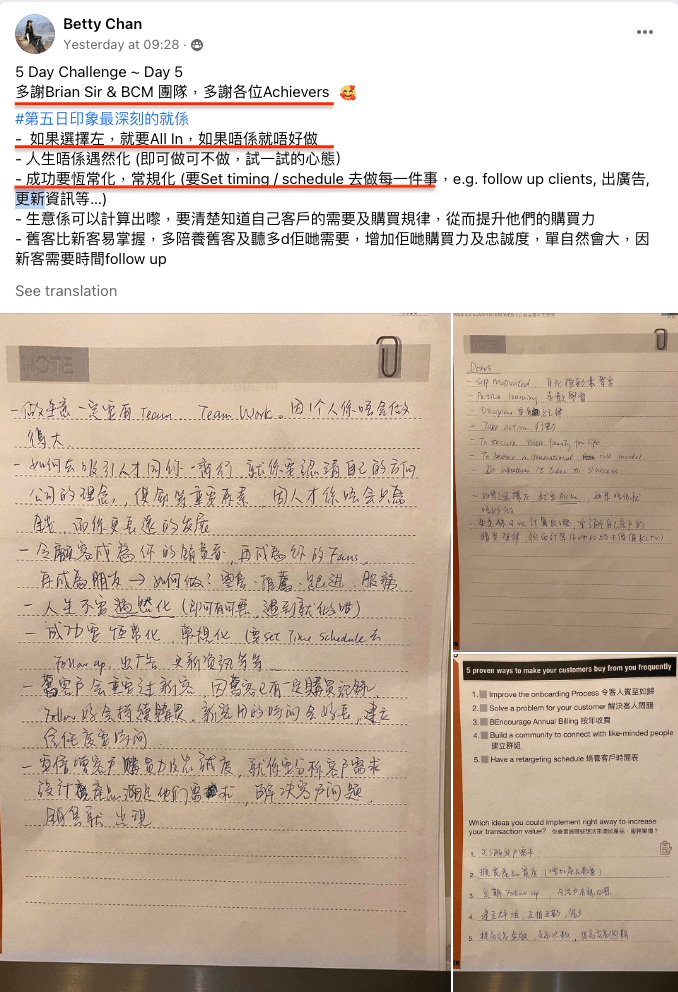 Betty Chan
Yesterday at 09:28
5 Day Challenge ~ Day 5
多謝Brian Sir & BCM 團隊，多謝各位Achievers 🥰
#第五日印象最深刻的就係
- 如果選擇左，就要All In，如果唔係就唔好做
- 人生唔係遇然化 (即可做可不做，試一試的心態)
- 成功要恆常化，常規化 (要Set timing / schedule 去做每一件事，e.g. follow up clients, 出廣告,
更新資訊等...)
- 生意係可以計算出嚟，要清楚知道自己客戶的需要及購買規律，從而提升他們的購買力
- 舊客比新客易掌握，多陪養舊客及聽多d佢哋需要，增加佢哋購買力及忠誠度，單自然會大，因
新客需要時間follow up
See translation
NOTE
- 做生意一定要有 Team Team Work. 因1個人係唔會做
得大.
- 如何去吸引人才同你一齊行 就係要認清自己的方向
公司的理念, 價錢等重要因素, 因人才係唔會只為
錢 而係更長遠的發展
- 令顧客成為你的銷售者, 再成為你的 Fans,
再成為朋友 → 如何做? 要 推薦 跟進 服務
- 人生不要遇然化 (即可有可無, 遇到就做啦)
- 成功要恆常化 常規化 (要set Time schedule 去
Follow up, 出廣告 更新資訊等等
- 舊客戶會重要過新客, 因舊客已有一定購買記錄
Follow 好會持續購買. 新客用的時間會好長, 建立
信任度要時間.
- 要倍增客戶購買力及忠誠度, 就係要分析客戶需求
設計產品 滿足他們需求, 解決客戶問題.
銷售就出現
NOTE
- Self Motivated
- Active learning
- Discipline
- Take action 行動
- To secure family for life
- To become a generational role model
- Do whatever it takes to success
5 proven ways to make your customers buy from you frequently
1. Improve the onboarding Process 令客人賓至如歸
2. Solve a problem for your customer 解決客人問題
3. BEncourage Annual Billing 按年收費
4. Build a community to connect with like-minded people
建立群組
5. Have a retargeting schedule 培養客戶時間表
Which ideas you could implement right away to increase
your transaction value?
1. 了解客戶需求
2.
3. 定期 Follow up
4. 建立群組, 互相互動
5.